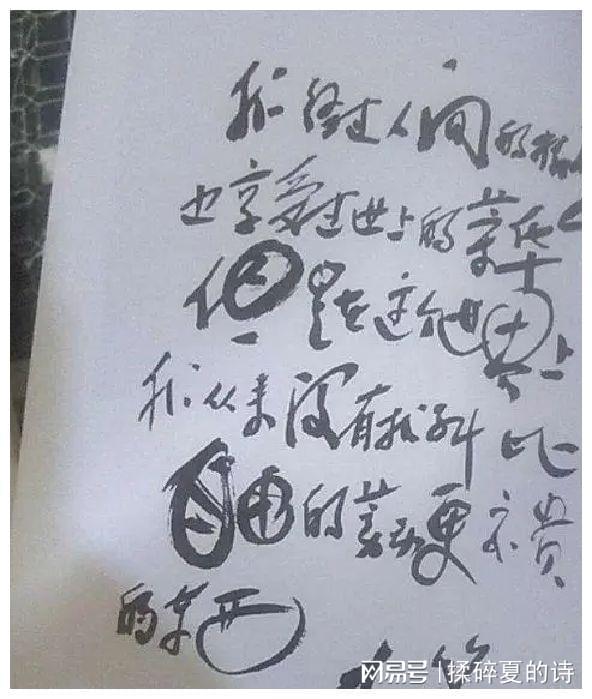 我经过人间的
也享受过世上的荣华
但是在这个世界上
我从来没有找到比
自由的
更宝贵
的东西
网易号 | 揉碎夏的诗